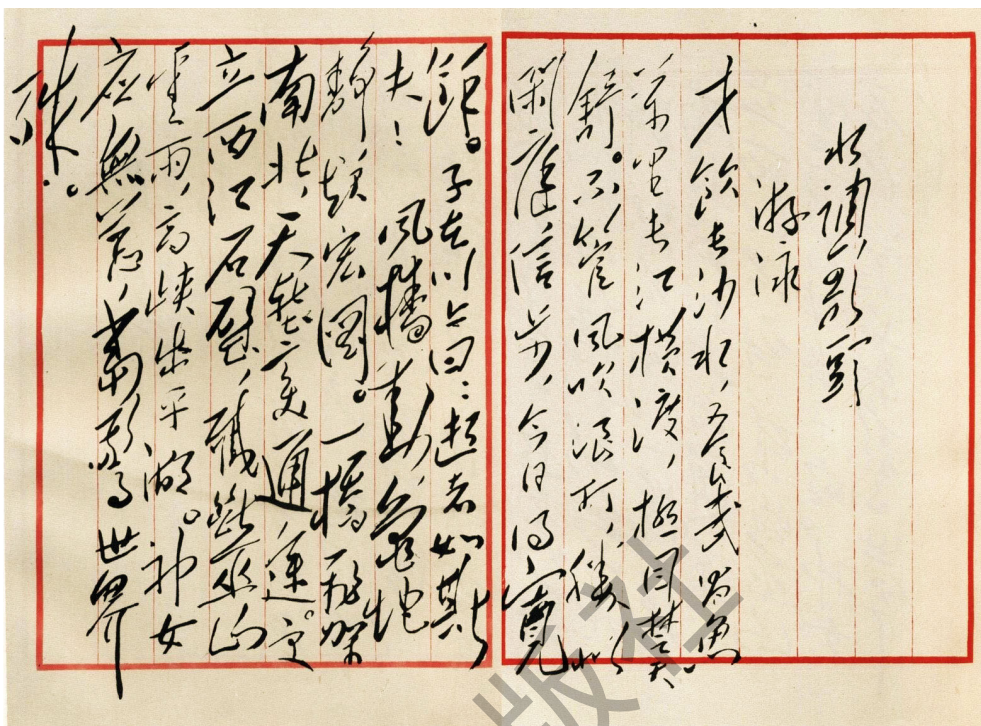 水調歌頭
游泳
才飲長沙水，又食武昌魚。
萬里長江橫渡，極目楚天
舒。不管風吹浪打，勝似
閑庭信步，今日得寬
餘。子在川上曰：逝者如斯
夫！風檣動，龜蛇
靜，起宏圖。一橋飛架
南北，天塹變通途。更
立西江石壁，截斷巫山
雲雨，高峽出平湖。神女
應無恙，當驚世界
殊。
版社